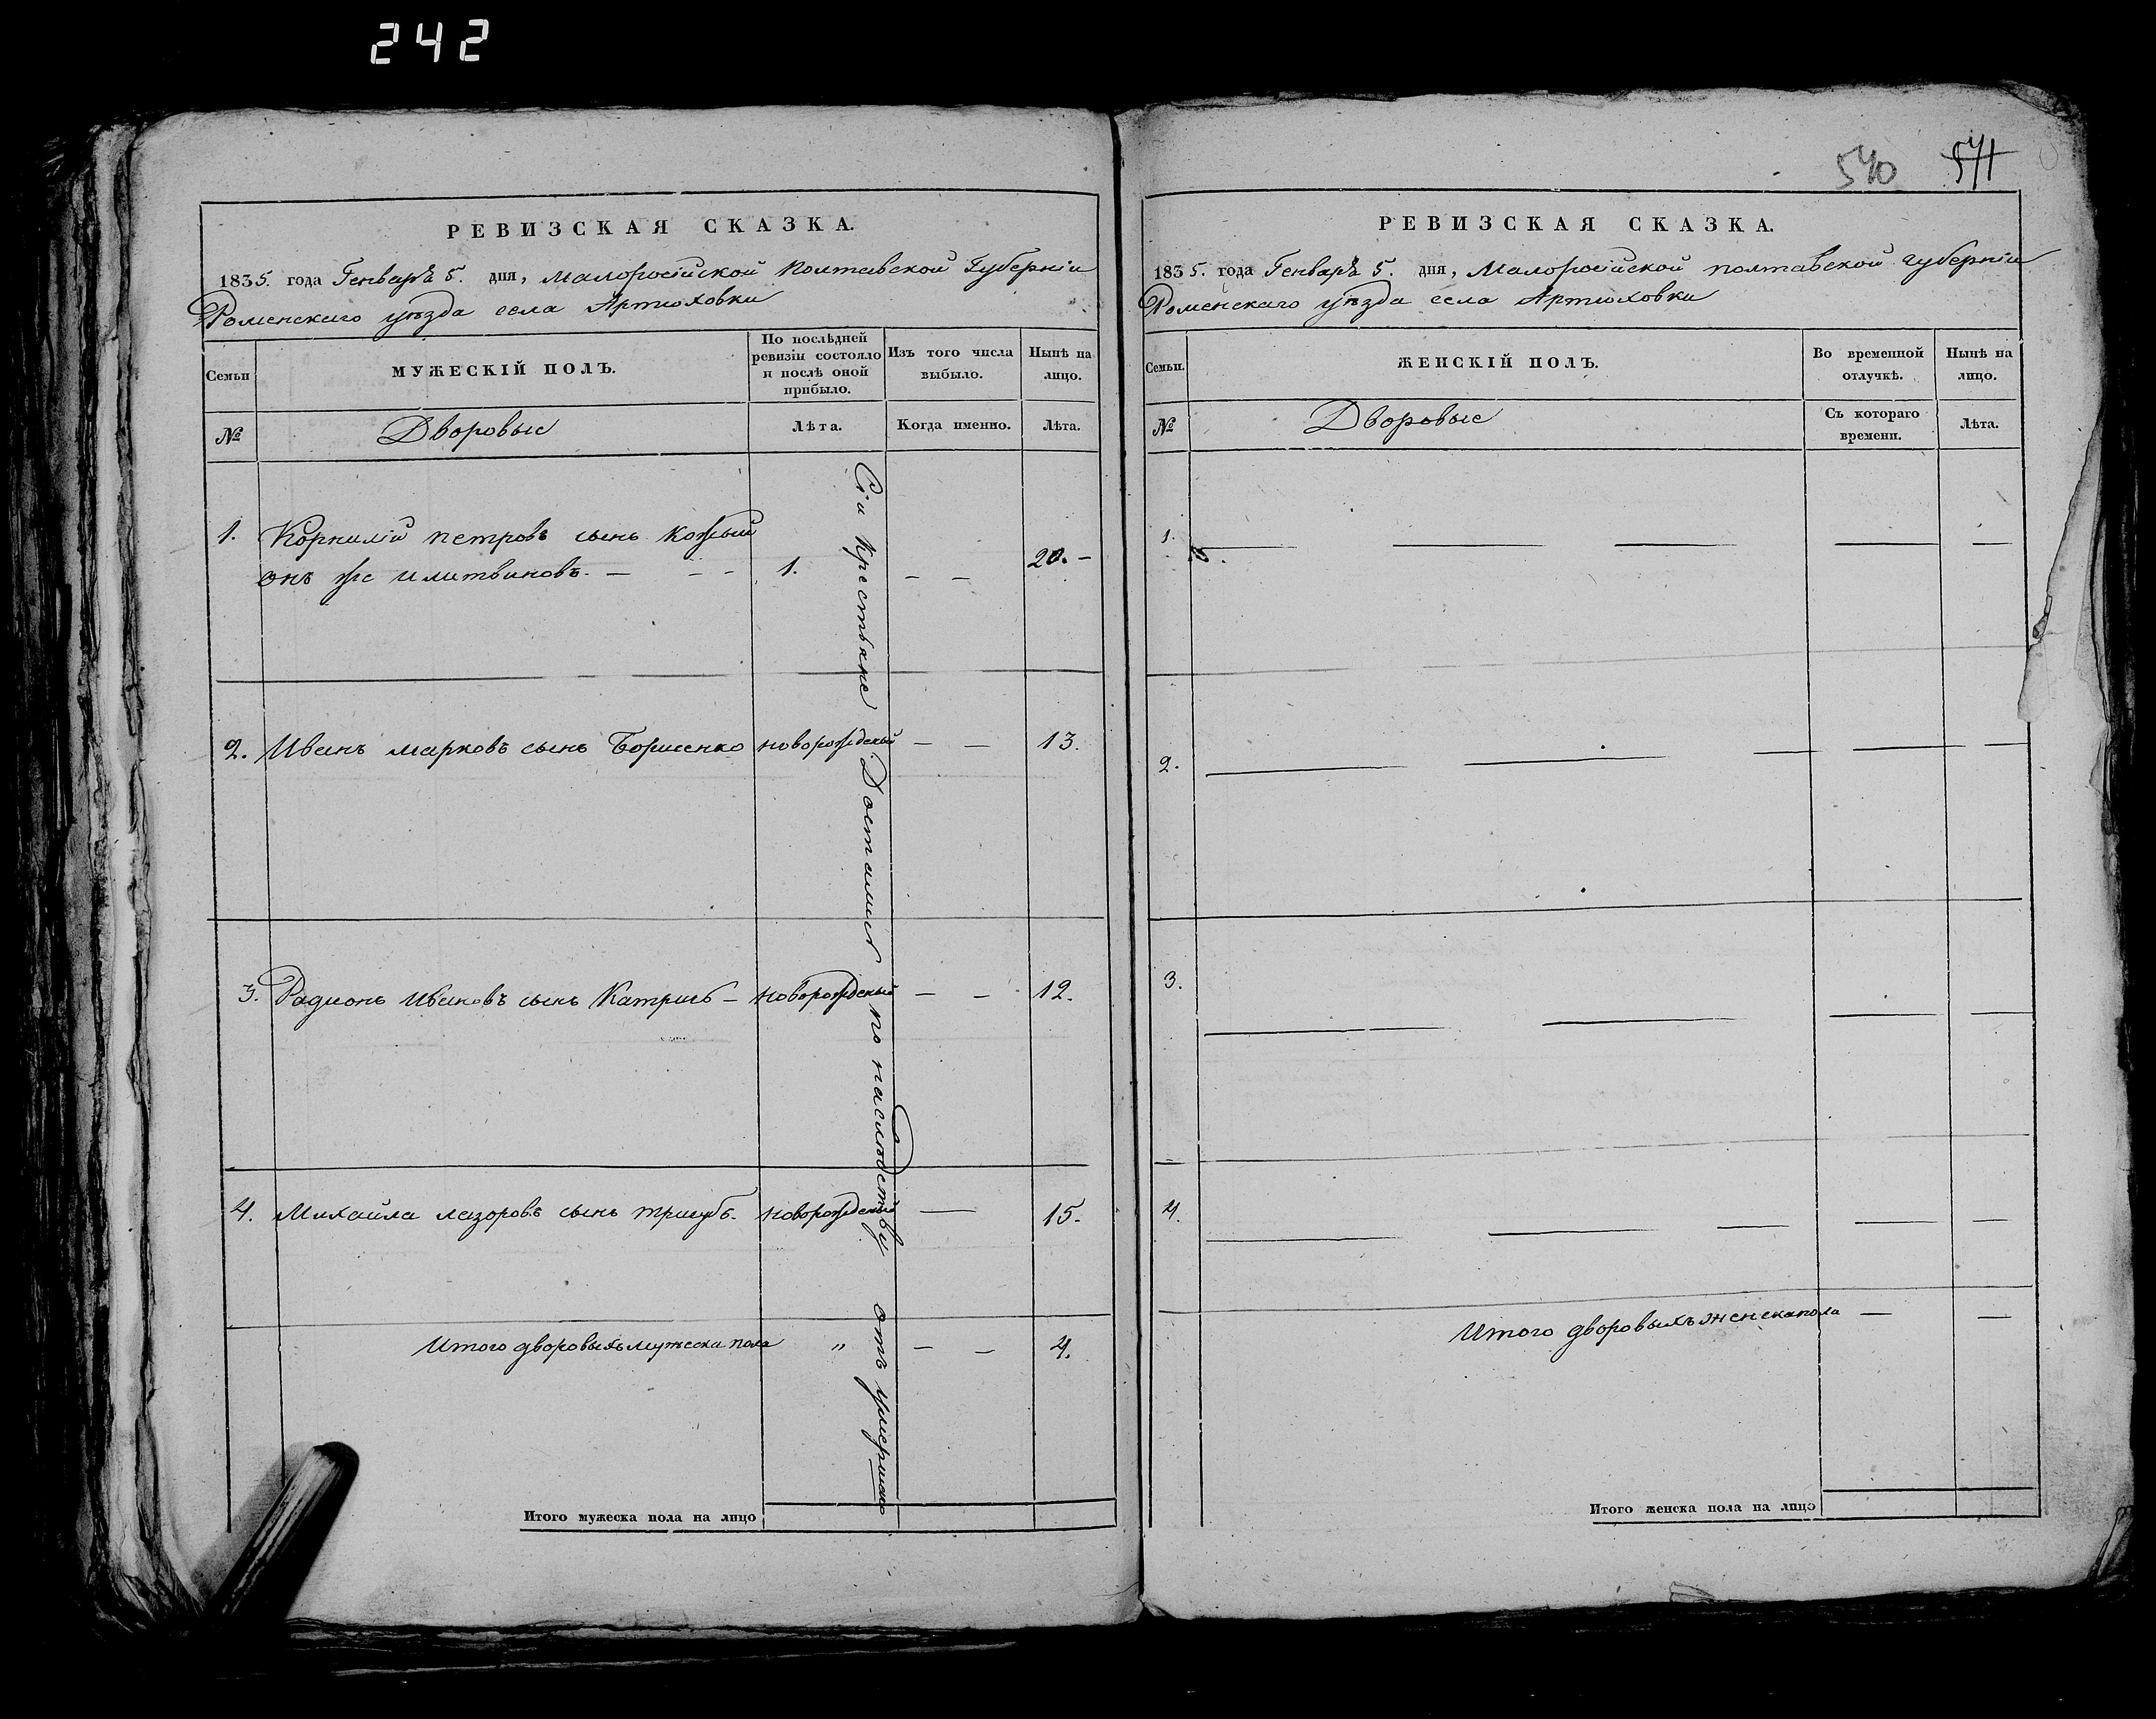 242
РЕВИЗСКАЯ СКАЗКА.
1835. года Генваря 5. дня, Малоросійской Полтавской Губерніи
Роменскаго уѣзда села Артюховки
Семьи
МУЖЕСКІЙ ПОЛЪ.
По послѣдней ревизіи состояло и послѣ оной прибыло.
Изъ того числа выбыло.
Нынѣ на лицо.
№
Дворовые
Лѣта.
Когда именно.
Лѣта.
1. Корнилій петровъ сынъ
онъ же илитвиновъ. — - - 1. — — 20. -
2. Иванъ марковъ сынъ Борисенко новорожденый — — 13.
3. Радионъ Ивановъ сынъ — новорожденый — — 12.
4. Михайла лазоровъ сынъ тригубъ. новорожденый — 15.
Итого дворовыхъ мужеска пола „ — — 4.
Сіи крестьяне Досталися по наследству отъ умершаго
Итого мужеска пола на лицо
540 541
РЕВИЗСКАЯ СКАЗКА.
1835. года Генваря 5. дня, Малоросійской полтавской губерніи
Роменскаго уѣзда села Артюховки
Семьи.
ЖЕНСКІЙ ПОЛЪ.
Во временной отлучкѣ.
Нынѣ на лицо.
№
Дворовые
Съ котораго времени.
Лѣта.
1. — — — — —
2. — — — — —
3. — — — — —
4. — — — — —
Итого дворовыхъ женска пола — —
Итого женска пола на лицо